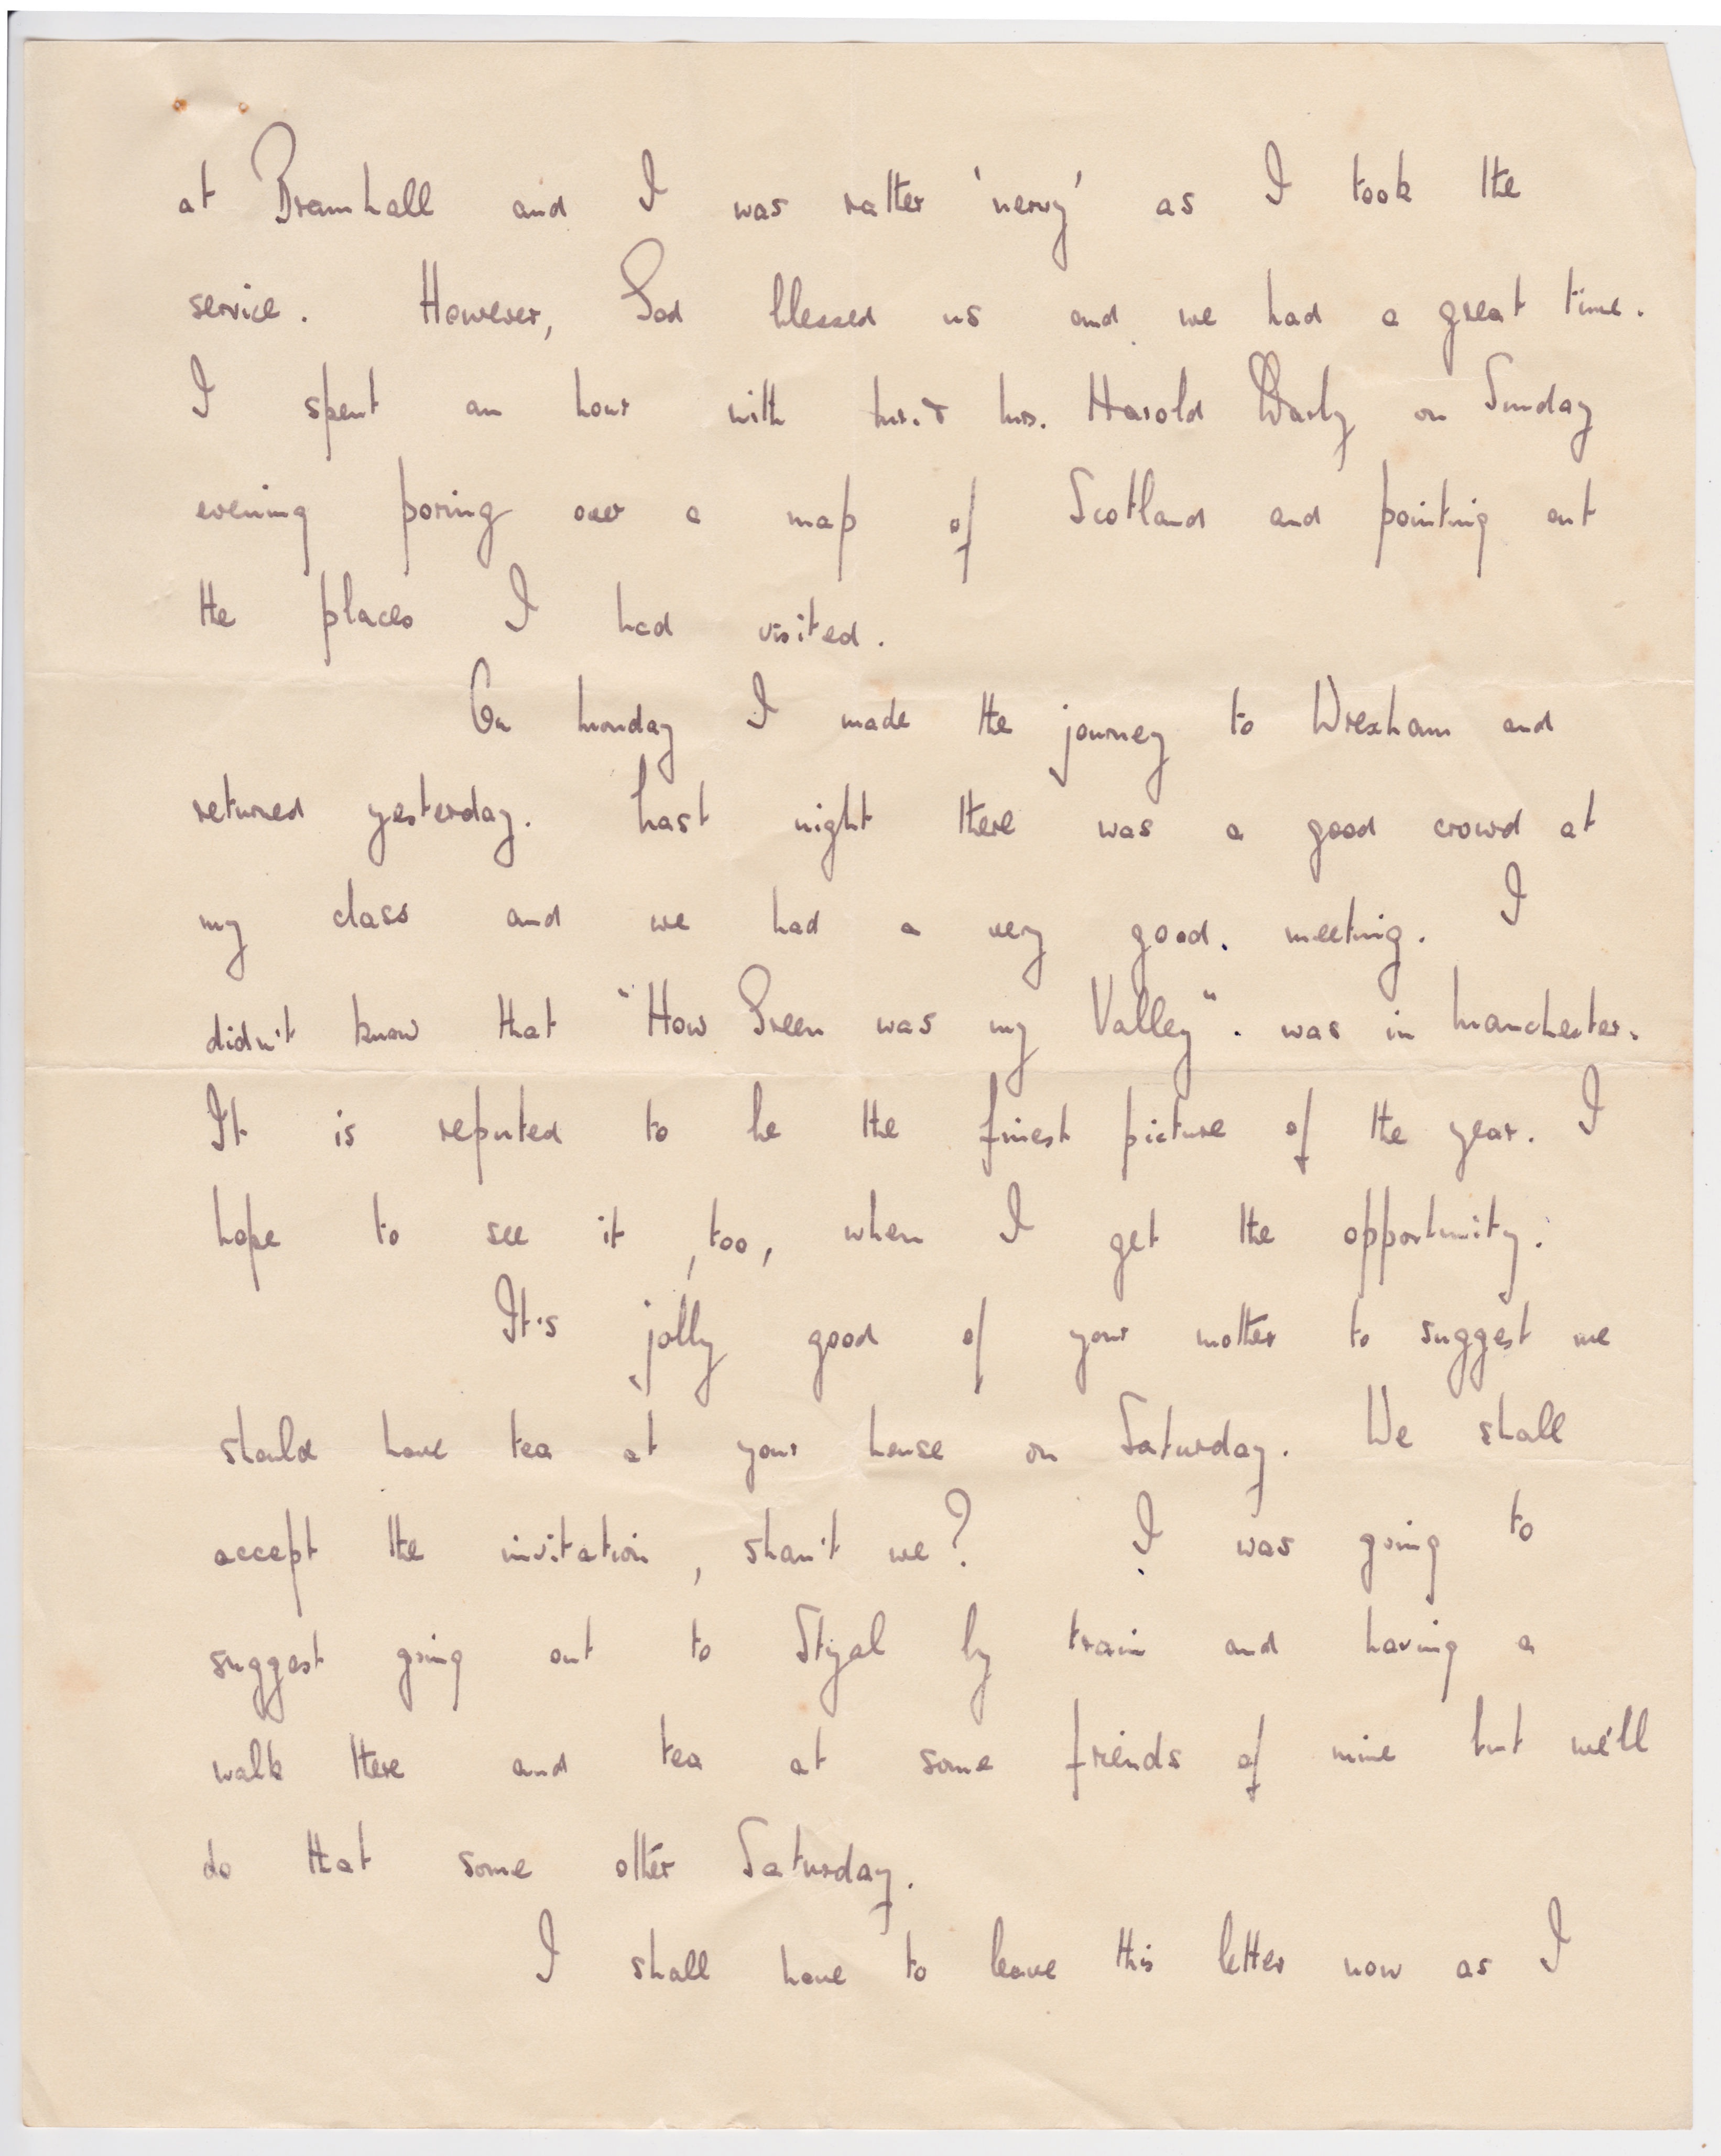 at Bramhall and I was rather 'nervy' as I took the
service. However, God blessed us and we had a great time.
I spent an hour with Mr. & Mrs. Harold on Sunday
evening poring over a map of Scotland and pointing out
the places I had visited.
On Monday I made the journey to Wrexham and
returned yesterday. Last night there was a good crowd at
my class and we had a very good. meeting. I
didn't know that "How Green was my Valley". was in Manchester.
It is reputed to be the finest picture of the year. I
hope to see it, too, when I get the opportunity.
It's jolly good of your mother to suggest we
should have tea at your house on Saturday. We shall
accept the invitation, shan't we? I was going to
suggest going out to Styal by train and having a
walk there and tea at some friends of mine but we'll
do that some other Saturday.
I shall have to leave this letter now as I